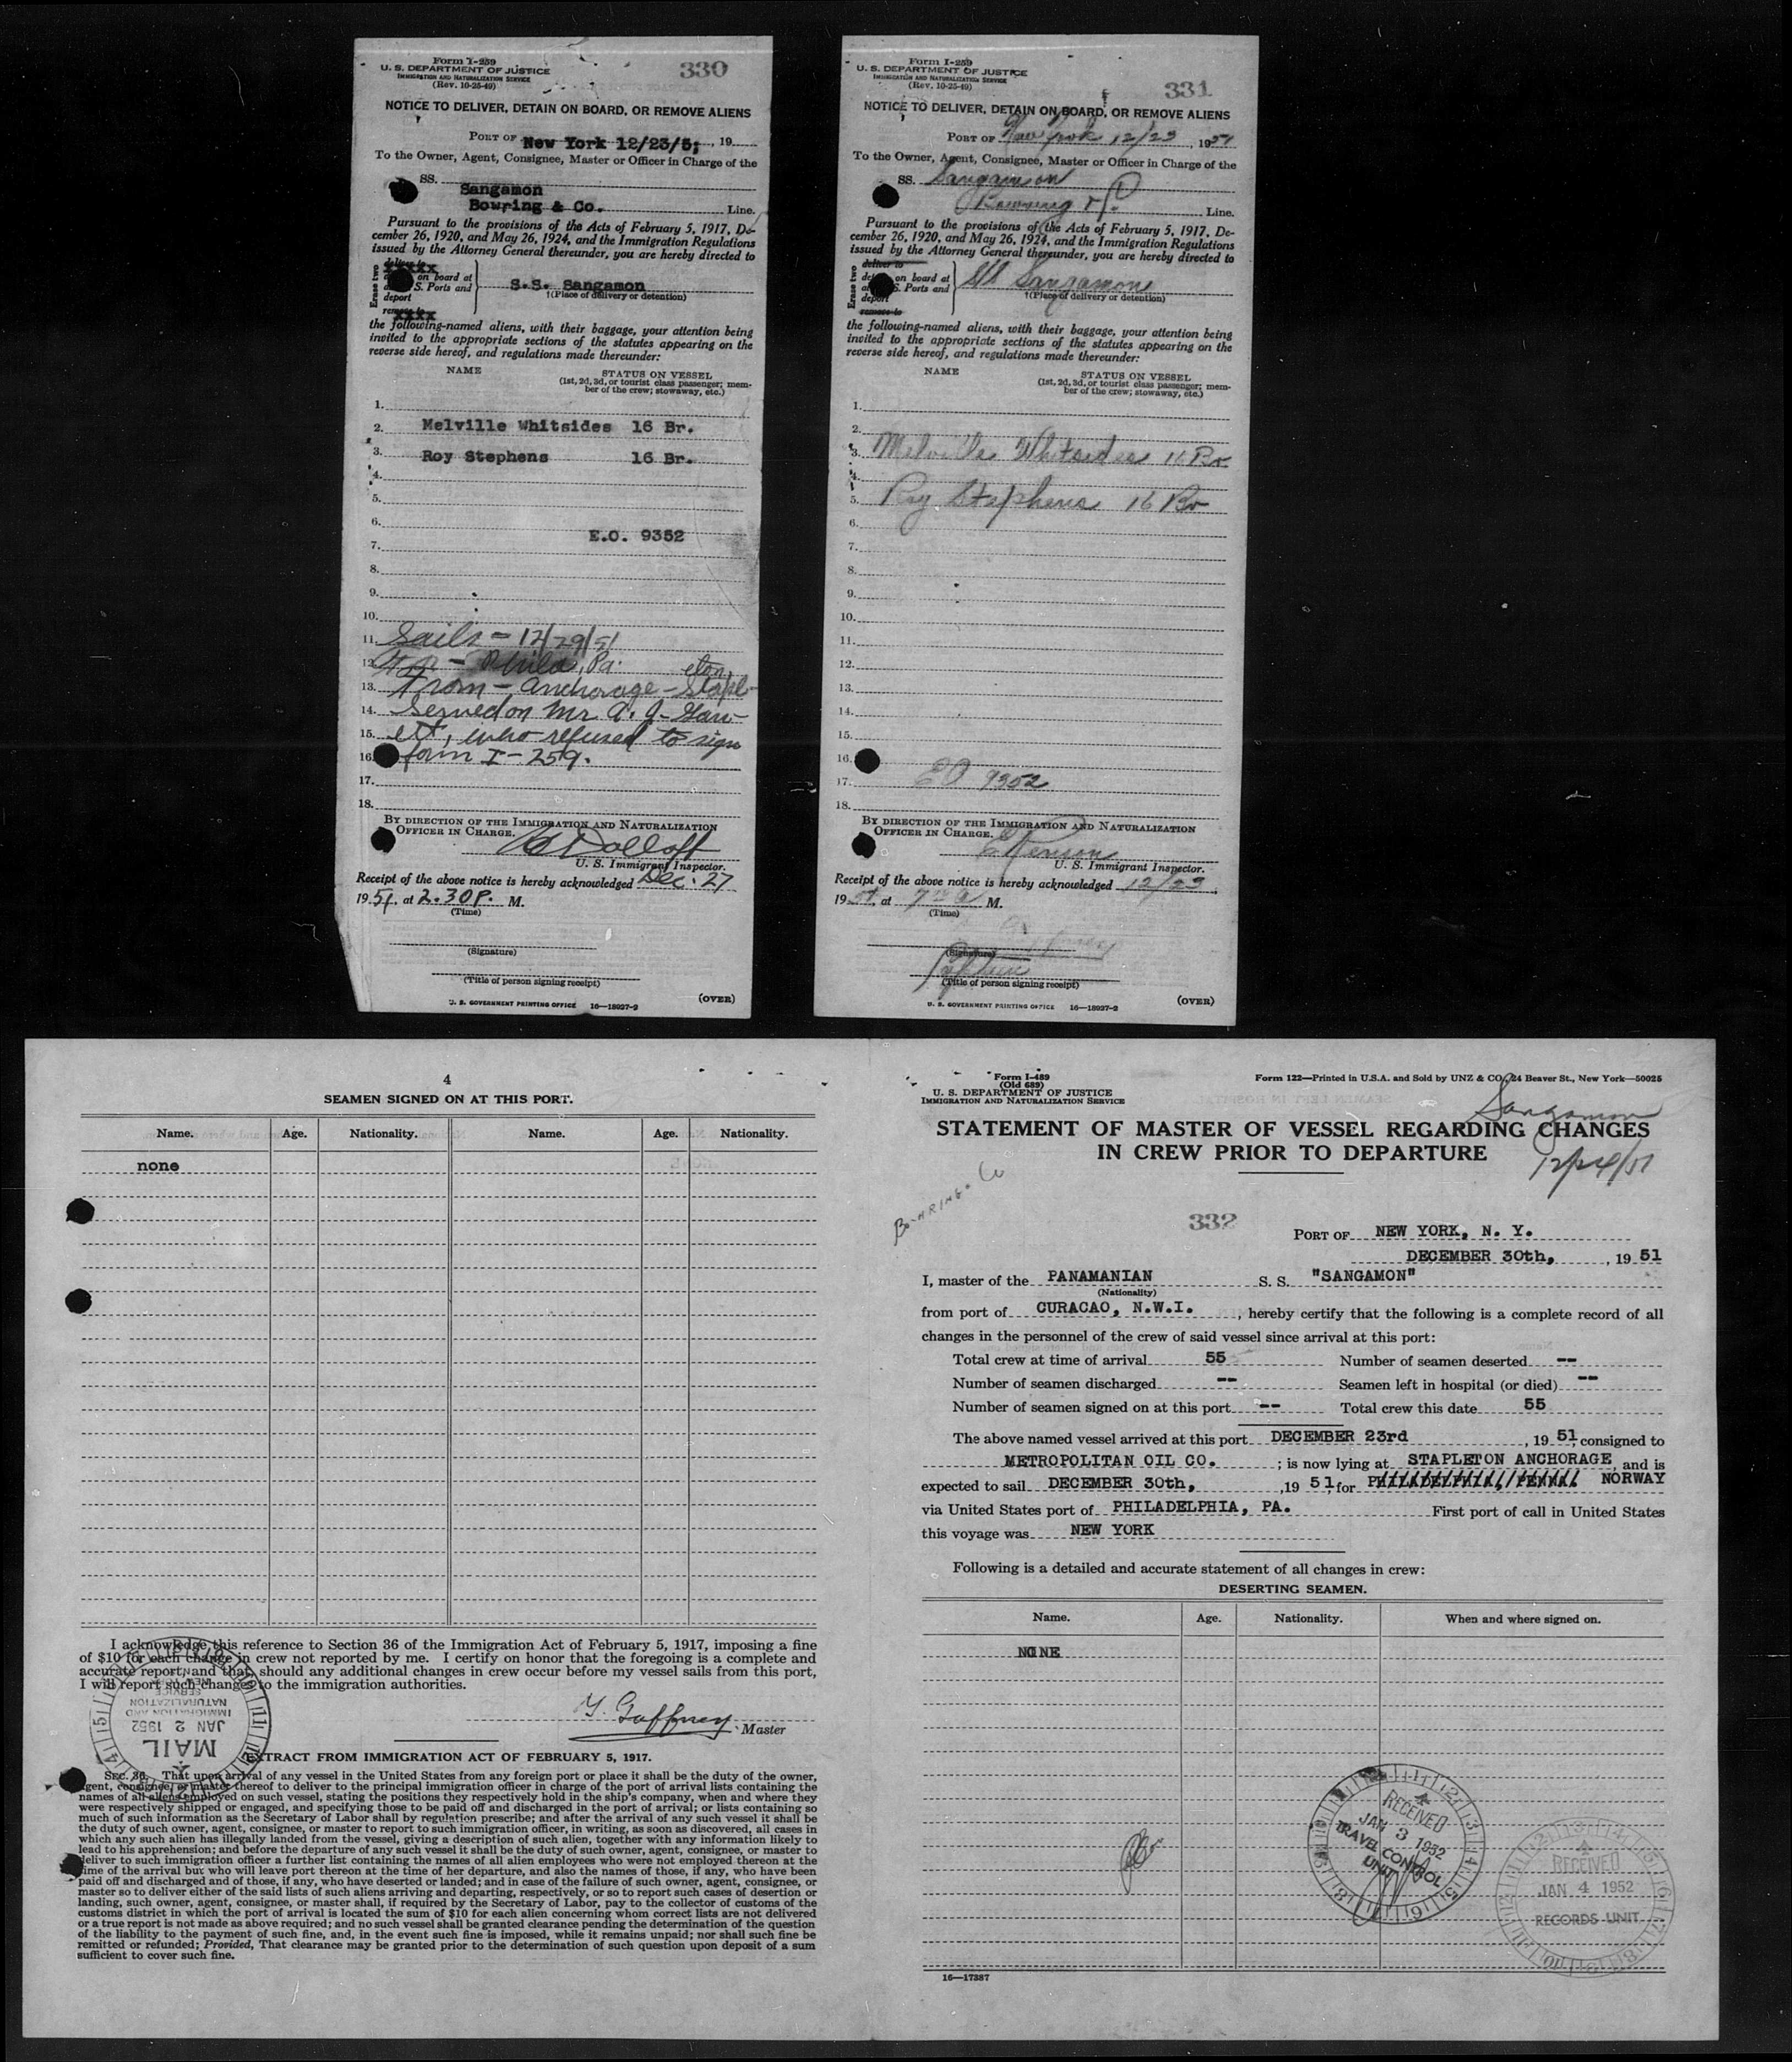 Form I-259
U. S. DEPARTMENT OF JUSTICE
IMMIGRATION AND NATURALIZATION SERVICE
(Rev. 10-25-49)
330
NOTICE TO DELIVER, DETAIN ON BOARD, OR REMOVE ALIENS
PORT OF New York 12/23/5; , 19
To the Owner, Agent, Consignee, Master or Officer in Charge of the
SS. Sangamon
Bowring & Co. Line.
Pursuant to the provisions of the Acts of February 5, 1917, De-
cember 26, 1920, and May 26, 1924, and the Immigration Regulations
issued by the Attorney General thereunder, you are hereby directed to
Erase two
on board at
S. Ports and
deport
S.S. Sangamon
†(Place of delivery or detention)
the following-named aliens, with their baggage, your attention being
invited to the appropriate sections of the statutes appearing on the
reverse side hereof, and regulations made thereunder:
NAME STATUS ON VESSEL
(1st, 2d, 3d, or tourist class passenger; mem-
ber of the crew; stowaway, etc.)
1.
2. Melville Whitsides 16 Br.
3. Roy Stephens 16 Br.
4.
5.
6.
E.O. 9352
7.
8.
9.
10.
11. Sails - 12/29/51
12. - Phila, Pa.
13. From - anchorage - Stapl-
eton
14. Served on Mr. A. J.
15. who refused to sign
16. form I-259.
17.
18.
BY DIRECTION OF THE IMMIGRATION AND NATURALIZATION
OFFICER IN CHARGE.
U. S. Immigrant Inspector.
Receipt of the above notice is hereby acknowledged Dec. 27
1951, at 2.30 P. M.
(Time)
(Signature)
(Title of person signing receipt)
U. S. GOVERNMENT PRINTING OFFICE 16—18027-2 (OVER)
Form I-259
U. S. DEPARTMENT OF JUSTICE
IMMIGRATION AND NATURALIZATION SERVICE
(Rev. 10-25-49)
331
NOTICE TO DELIVER, DETAIN ON BOARD, OR REMOVE ALIENS
PORT OF New York 12/23 , 1951
To the Owner, Agent, Consignee, Master or Officer in Charge of the
SS. Sangamon
Bowring & Line.
Pursuant to the provisions of the Acts of February 5, 1917, De-
cember 26, 1920, and May 26, 1924, and the Immigration Regulations
issued by the Attorney General thereunder, you are hereby directed to
Erase two
deliver to
on board at
S. Ports and
deport
remove to
SS Sangamon
†(Place of delivery or detention)
the following-named aliens, with their baggage, your attention being
invited to the appropriate sections of the statutes appearing on the
reverse side hereof, and regulations made thereunder:
NAME STATUS ON VESSEL
(1st, 2d, 3d, or tourist class passenger; mem-
ber of the crew; stowaway, etc.)
1.
2.
3. Melville Whitsides 16 Br
4.
5. Roy Stephens 16 Br
6.
7.
8.
9.
10.
11.
12.
13.
14.
15.
16.
17. EO 9352
18.
BY DIRECTION OF THE IMMIGRATION AND NATURALIZATION
OFFICER IN CHARGE.
U. S. Immigrant Inspector.
Receipt of the above notice is hereby acknowledged 12/23,
1951, at M.
(Time)
(Signature)
(Title of person signing receipt)
U. S. GOVERNMENT PRINTING OFFICE 16—18027-2 (OVER)
4
SEAMEN SIGNED ON AT THIS PORT.
Name. Age. Nationality. Name. Age. Nationality.
none
I acknowledge this reference to Section 36 of the Immigration Act of February 5, 1917, imposing a fine
of $10 for each change in crew not reported by me. I certify on honor that the foregoing is a complete and
accurate report, and that, should any additional changes in crew occur before my vessel sails from this port,
I will report such changes to the immigration authorities.
Gaffney. Master
MAIL
JAN 2 1952
IMMIGRATION AND
NATURALIZATION
SERVICE
EXTRACT FROM IMMIGRATION ACT OF FEBRUARY 5, 1917.
SEC. 36. That upon arrival of any vessel in the United States from any foreign port or place it shall be the duty of the owner,
agent, consignee, or master thereof to deliver to the principal immigration officer in charge of the port of arrival lists containing the
names of all aliens employed on such vessel, stating the positions they respectively hold in the ship's company, when and where they
were respectively shipped or engaged, and specifying those to be paid off and discharged in the port of arrival; or lists containing so
much of such information as the Secretary of Labor shall by regulation prescribe; and after the arrival of any such vessel it shall be
the duty of such owner, agent, consignee, or master to report to such immigration officer, in writing, as soon as discovered, all cases in
which any such alien has illegally landed from the vessel, giving a description of such alien, together with any information likely to
lead to his apprehension; and before the departure of any such vessel it shall be the duty of such owner, agent, consignee, or master to
deliver to such immigration officer a further list containing the names of all alien employees who were not employed thereon at the
time of the arrival but who will leave port thereon at the time of her departure, and also the names of those, if any, who have been
paid off and discharged and of those, if any, who have deserted or landed; and in case of the failure of such owner, agent, consignee, or
master so to deliver either of the said lists of such aliens arriving and departing, respectively, or so to report such cases of desertion or
landing, such owner, agent, consignee, or master shall, if required by the Secretary of Labor, pay to the collector of customs of the
customs district in which the port of arrival is located the sum of $10 for each alien concerning whom correct lists are not delivered
or a true report is not made as above required; and no such vessel shall be granted clearance pending the determination of the question
of the liability to the payment of such fine, and, in the event such fine is imposed, while it remains unpaid; nor shall such fine be
remitted or refunded; Provided, That clearance may be granted prior to the determination of such question upon deposit of a sum
sufficient to cover such fine.
Form I-489
(Old 689)
U. S. DEPARTMENT OF JUSTICE
IMMIGRATION AND NATURALIZATION SERVICE
Form 122—Printed in U.S.A. and Sold by UNZ & CO., 24 Beaver St., New York—50025
Sangamon
STATEMENT OF MASTER OF VESSEL REGARDING CHANGES
IN CREW PRIOR TO DEPARTURE
12/24/51
BOWRING & Co
332
PORT OF NEW YORK, N. Y.
DECEMBER 30th, , 19 51
I, master of the PANAMANIAN S. S. "SANGAMON"
(Nationality)
from port of CURACAO, N.W.I. , hereby certify that the following is a complete record of all
changes in the personnel of the crew of said vessel since arrival at this port:
Total crew at time of arrival 55 Number of seamen deserted --
Number of seamen discharged -- Seamen left in hospital (or died) --
Number of seamen signed on at this port -- Total crew this date 55
The above named vessel arrived at this port DECEMBER 23rd , 19 51, consigned to
METROPOLITAN OIL CO. ; is now lying at STAPLETON ANCHORAGE, and is
expected to sail DECEMBER 30th, , 19 51, for PHILADELPHIA, PENNA. NORWAY
via United States port of PHILADELPHIA, PA. First port of call in United States
this voyage was NEW YORK
Following is a detailed and accurate statement of all changes in crew:
DESERTING SEAMEN.
Name. Age. Nationality. When and where signed on.
NONE
RECEIVED
JAN 3 1952
TRAVEL CONTROL
UNIT
RECEIVED
JAN 4 1952
RECORDS UNIT
16—17387